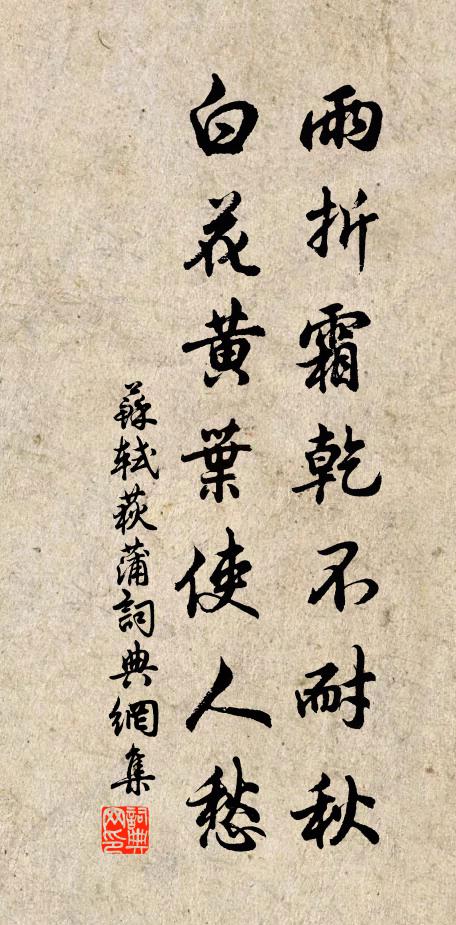 雨折霜乾不耐秋
白花黃葉使人愁
蘇軾荻蒲詞典網集
詞典网印